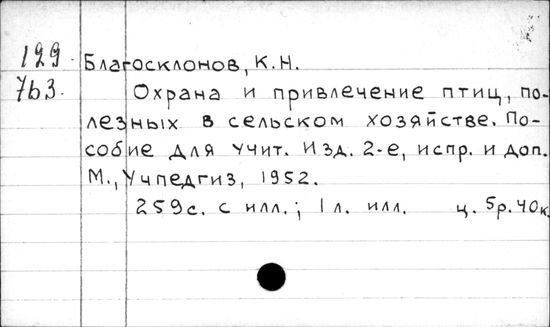 129 Благосклонов, К.Н.
7b3. Охрана и привлечение птиц, по-
лезных в сельском хозяйстве. По-
собие для учит. Изд. 2-е, испр. и доп.
М., Учпедгиз, 1952.
259с. с илл.; 1 л. илл. ц. 5р.40к.